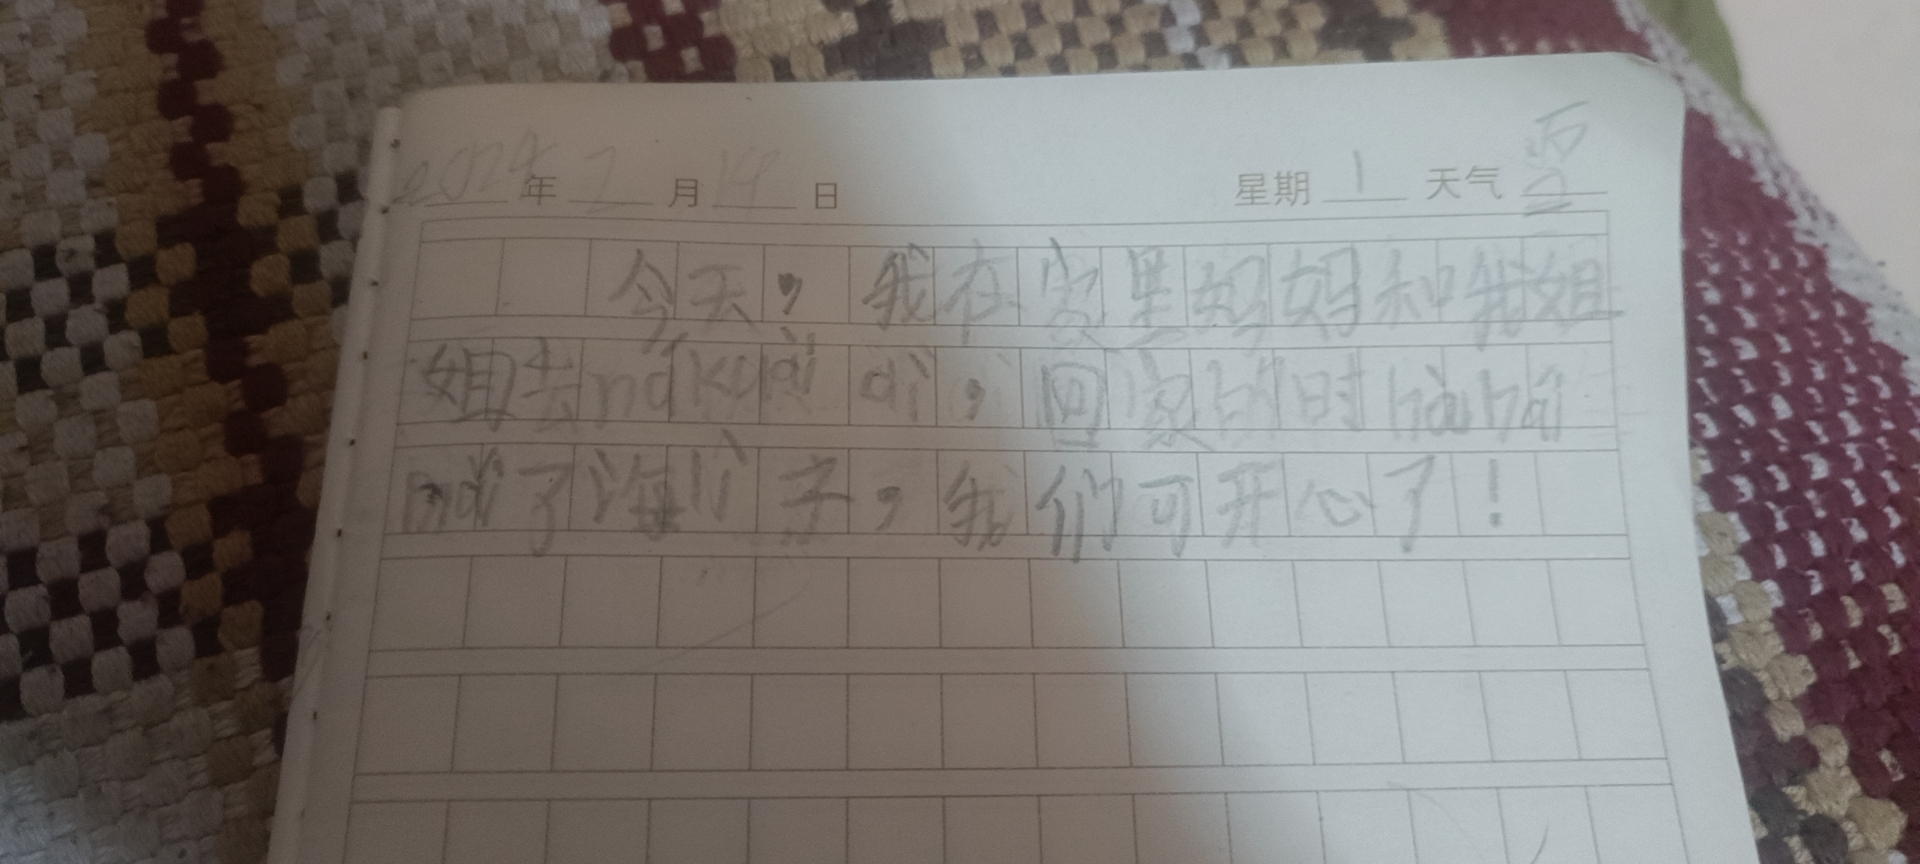 2024年 2月 19日 星期 1 天气
今天，我在家里妈妈和我姐
姐去ná kuài dì，回家的时hòu hái
mǎi了海lí子，我们可开心了！